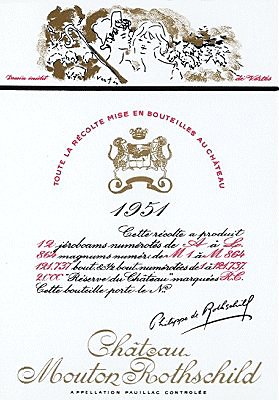 Dessin inédit de Vertès
TOUTE LA RÉCOLTE MISE EN BOUTEILLES AU CHÂTEAU
1951
Cette récolte a produit
12 jéroboams numérotés de A à L
864 magnums numér. de M 1 à M 864
121.737 bout. & ½ bout. numérotées de 1 à 121.737
2000 "Réserve du Château" marquées R.C.
Cette bouteille porte le No
Philippe de Rothschild
Château
Mouton Rothschild
APPELLATION PAUILLAC CONTRÔLÉE